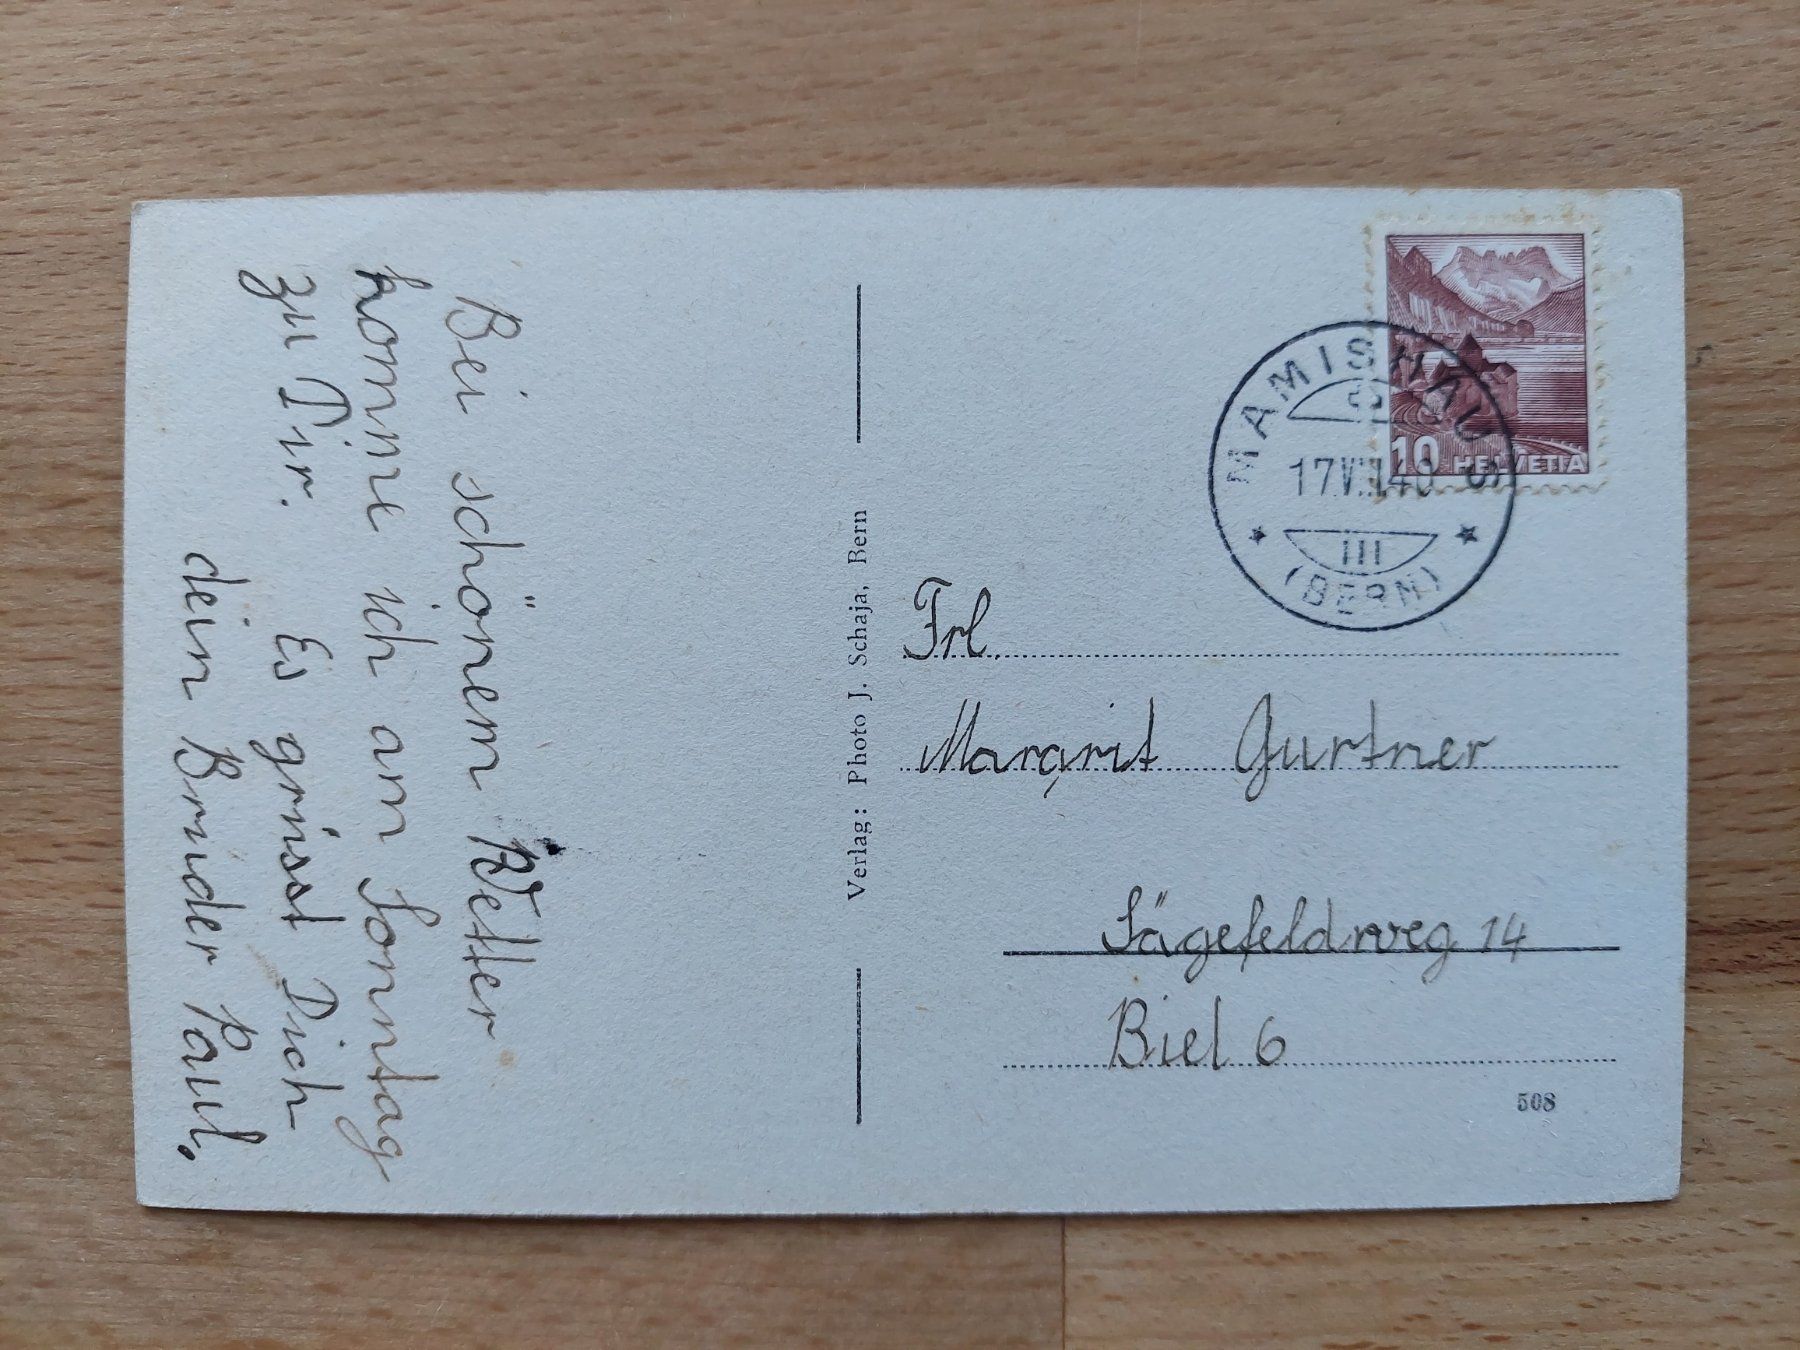 Bei schönem Wetter
komme ich am Sonntag
zu Dir. Es grüsst Dich
dein Bruder Paul.
Verlag: Photo J. Schaja, Bern
10 HELVETIA
MAMISHAUS
III
(BERN)
Frl.
Margrit Gurtner
Sägefeldweg 14
Biel 6
508